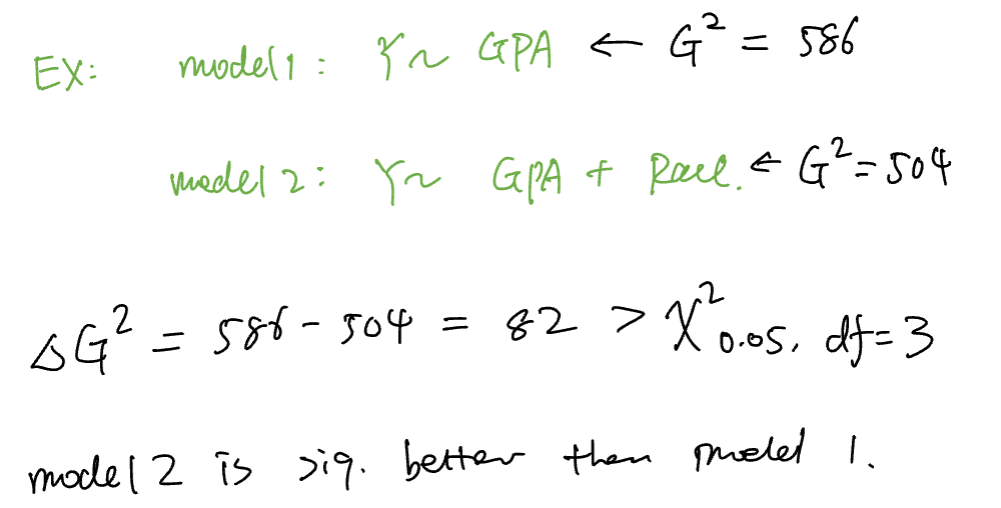 EX: model 1: Y~ GPA ← G² = 586
model 2: Y~ GPA + Race. ← G² = 504
ΔG² = 586 - 504 = 82 > χ²0.05, df = 3
model 2 is sig. better than model 1.